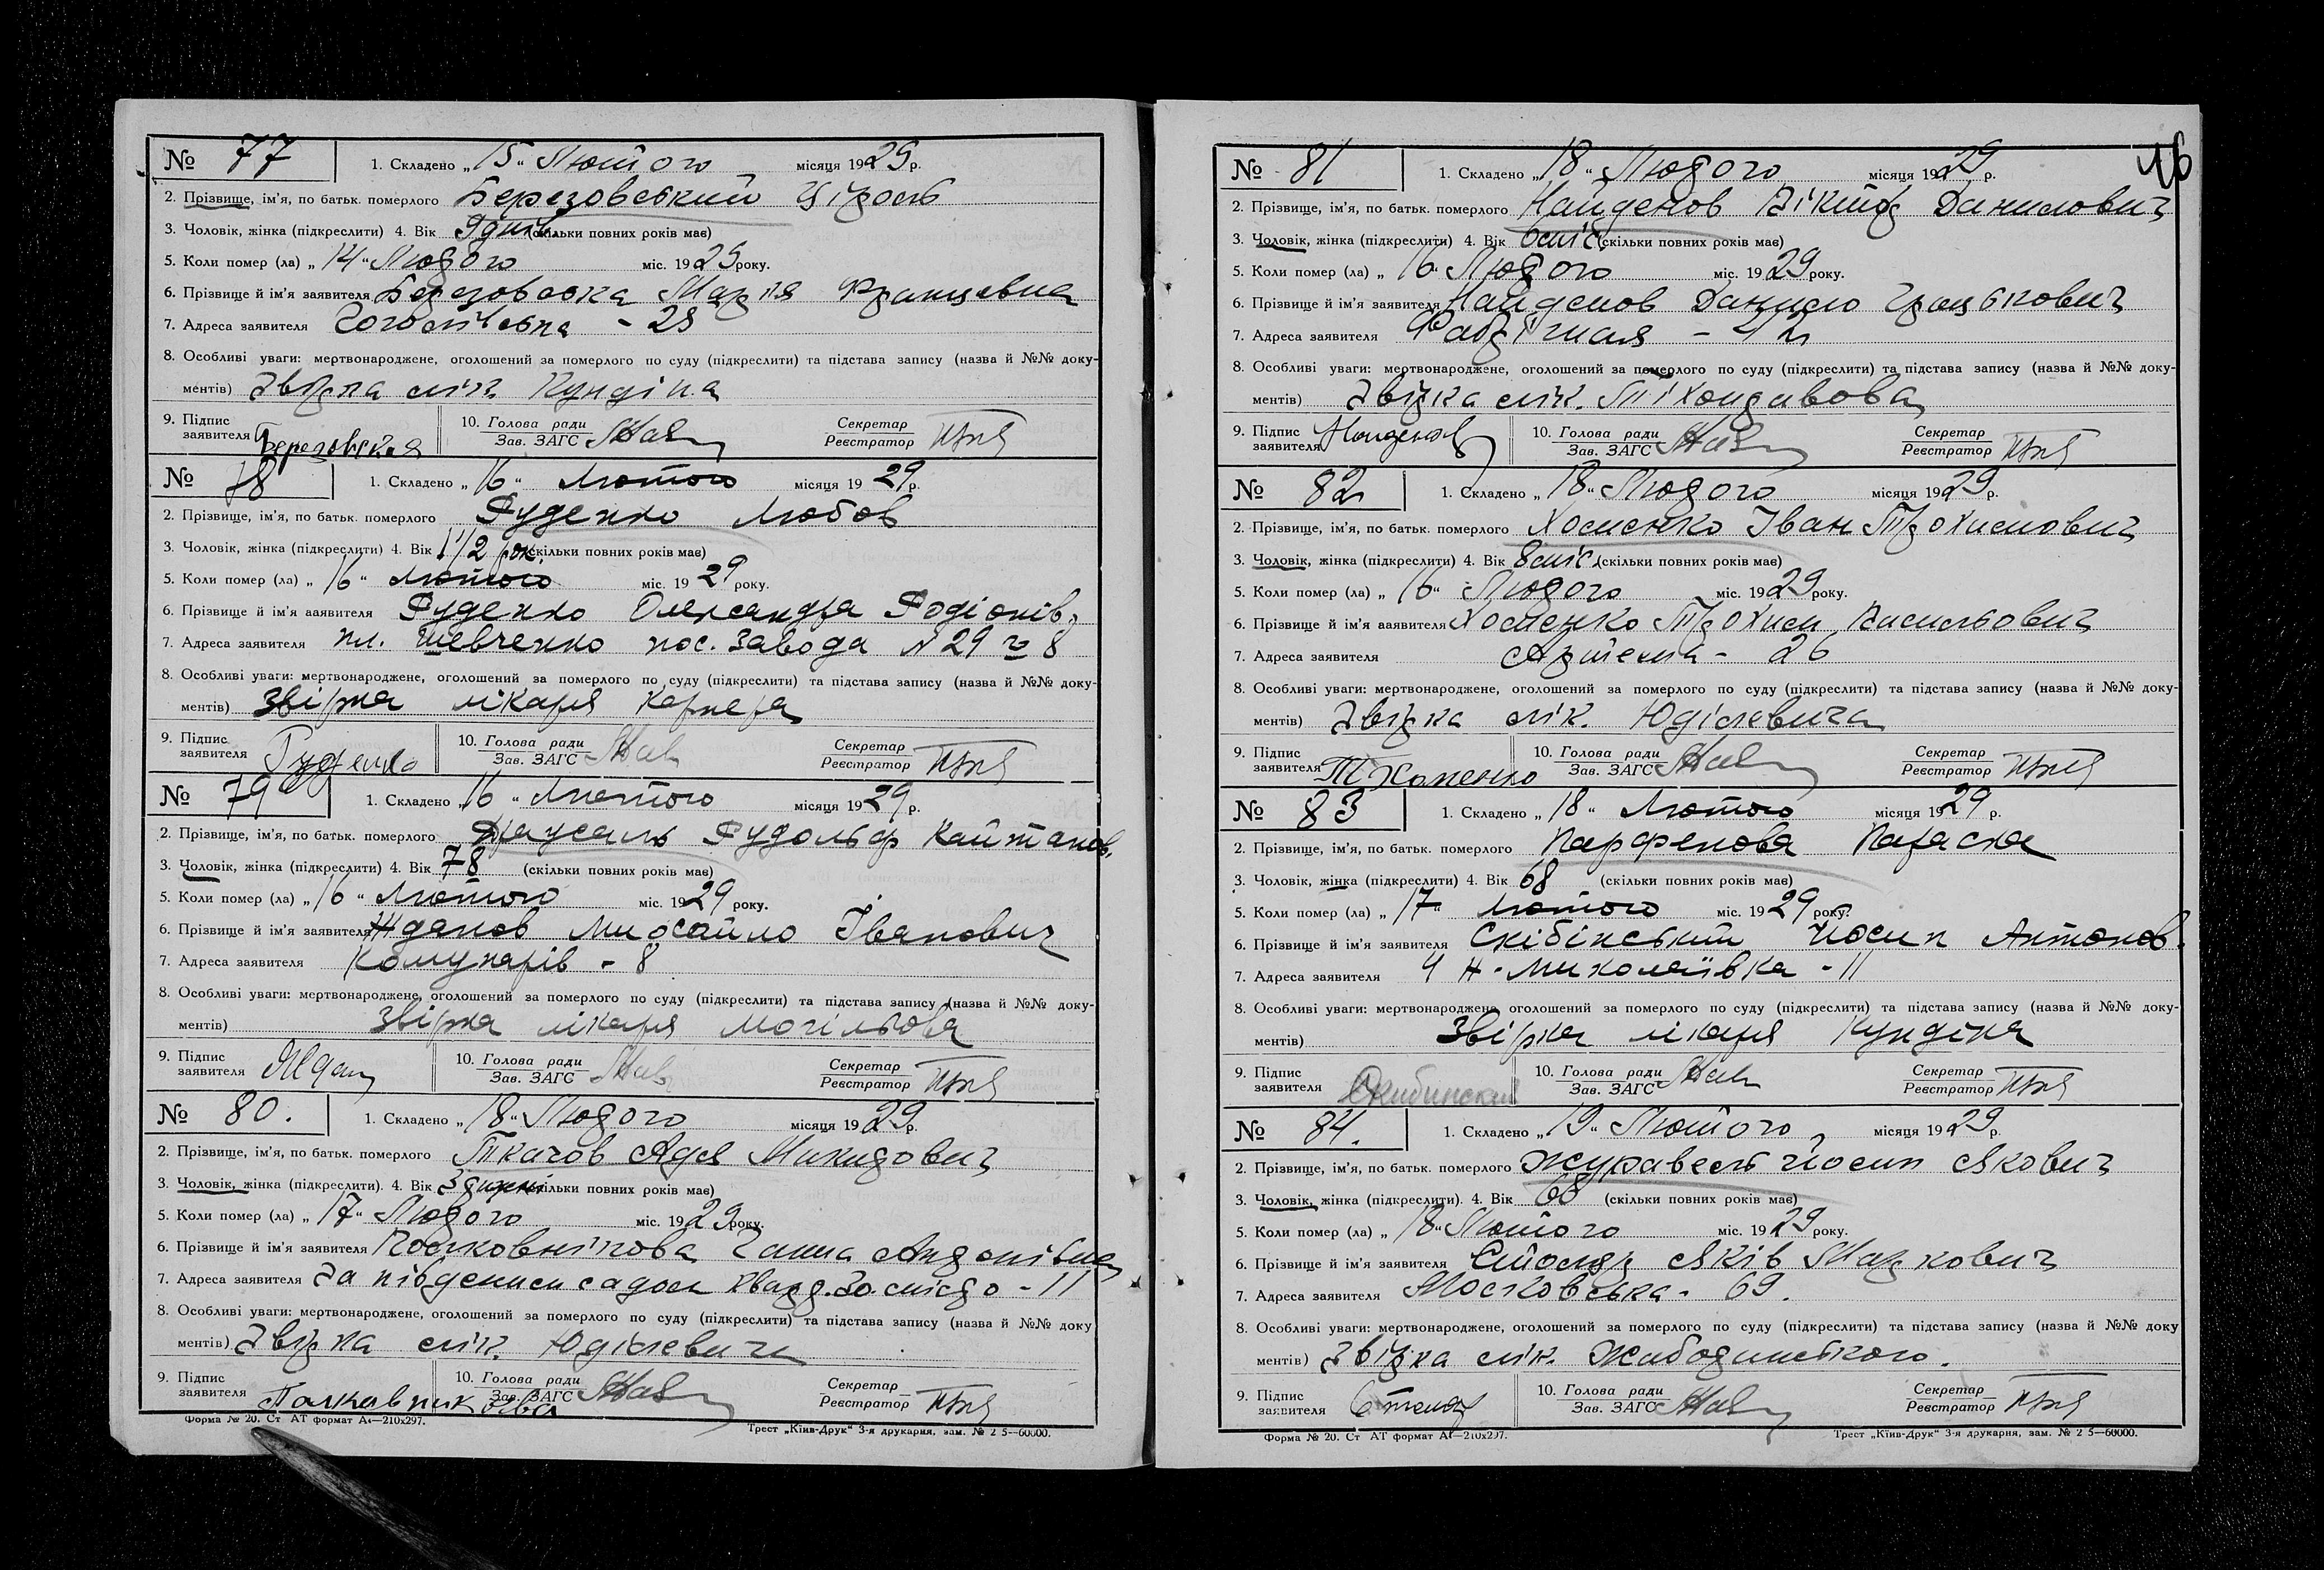 № 77 1. Складено „15“ Лютого місяця 1929 р.
2. Прізвище, ім'я, по батьк. померлого Березовський
3. Чоловік, жінка (підкреслити) 4. Вік (скільки повних років має)
5. Коли помер (ла) „14“ Лютого міс. 1929 року.
6. Прізвище й ім'я заявителя Березовська Марія Францевна
7. Адреса заявителя Гоголівська - 28
8. Особливі уваги: мертвонароджене, оголошений за померлого по суду (підкреслити) та підстава запису (назва й №№ доку-
ментів) Звірка лік. Кундіна
9. Підпис заявителя Березовская 10. Голова ради Зав. ЗАГС Секретар Реєстратор
№ 78 1. Складено „16“ Лютого місяця 1929 р.
2. Прізвище, ім'я, по батьк. померлого Руденко Любов
3. Чоловік, жінка (підкреслити) 4. Вік 1 1/2 рок. (скільки повних років має)
5. Коли помер (ла) „16“ Лютого міс. 1929 року.
6. Прізвище й ім'я заявителя Руденко Олександра Родіонів.
7. Адреса заявителя пл. Шевченко пос. Завода № 29 8
8. Особливі уваги: мертвонароджене, оголошений за померлого по суду (підкреслити) та підстава запису (назва й №№ доку-
ментів) Звірка лікаря Карнера
9. Підпис заявителя Руденко 10. Голова ради Зав. ЗАГС Секретар Реєстратор
№ 79 1. Складено „16“ Лютого місяця 1929 р.
2. Прізвище, ім'я, по батьк. померлого Рудольф Кайтанов.
3. Чоловік, жінка (підкреслити) 4. Вік 78 (скільки повних років має)
5. Коли помер (ла) „16“ Лютого міс. 1929 року.
6. Прізвище й ім'я заявителя Жданов Михайло Іванович
7. Адреса заявителя Комунарів - 8
8. Особливі уваги: мертвонароджене, оголошений за померлого по суду (підкреслити) та підстава запису (назва й №№ доку-
ментів) Звірка лікаря Могільова
9. Підпис заявителя Ждан 10. Голова ради Зав. ЗАГС Секретар Реєстратор
№ 80. 1. Складено „18“ Лютого місяця 1929 р.
2. Прізвище, ім'я, по батьк. померлого Ткачов Микитович
3. Чоловік, жінка (підкреслити). 4. Вік 3 (скільки повних років має)
5. Коли помер (ла) „17“ Лютого міс. 1929 року.
6. Прізвище й ім'я заявителя Полковнікова Ганна Антонівна
7. Адреса заявителя За південним садом - 11
8. Особливі уваги: мертвонароджене, оголошений за померлого по суду (підкреслити) та підстава запису (назва й №№ доку
ментів) Звірка лік. Юділевича
9. Підпис заявителя Палкавникова 10. Голова ради Зав. ЗАГС Секретар Реєстратор
Форма № 20. Ст АТ формат А4—210x297. Трест „Київ-Друк“ 3-я друкарня, зам. № 2 5—60000.
16
№ 81 1. Складено „18“ Лютого місяця 1929 р.
2. Прізвище, ім'я, по батьк. померлого Найденов Віктор Данилович
3. Чоловік, жінка (підкреслити) 4. Вік 6 міс (скільки повних років має)
5. Коли помер (ла) „16“ Лютого міс. 1929 року.
6. Прізвище й ім'я заявителя Найденов Данило
7. Адреса заявителя Фабрічная - 42
8. Особливі уваги: мертвонароджене, оголошений за померлого по суду (підкреслити) та підстава запису (назва й №№ доку-
ментів) Звірка лік.
9. Підпис заявителя Найденов 10. Голова ради Зав. ЗАГС Секретар Реєстратор
№ 82 1. Складено „18“ Лютого місяця 1929 р.
2. Прізвище, ім'я, по батьк. померлого Хоменко Іван Трохимович
3. Чоловік, жінка (підкреслити) 4. Вік 8 міс. (скільки повних років має)
5. Коли помер (ла) „16“ Лютого міс. 1929 року.
6. Прізвище й ім'я заявителя Хоменко Трохим Васильович
7. Адреса заявителя Артема - 26
8. Особливі уваги: мертвонароджене, оголошений за померлого по суду (підкреслити) та підстава запису (назва й №№ доку-
ментів) Звірка лік. Юділевича
9. Підпис заявителя Т Хоменко 10. Голова ради Зав. ЗАГС Секретар Реєстратор
№ 83 1. Складено „18“ Лютого місяця 1929 р.
2. Прізвище, ім'я, по батьк. померлого Парфенова Параска
3. Чоловік, жінка (підкреслити) 4. Вік 68 (скільки повних років має)
5. Коли помер (ла) „17“ Лютого міс. 1929 року.
6. Прізвище й ім'я заявителя Скібінський Йосип Антонов.
7. Адреса заявителя 4 Н-Миколаївка - 11
8. Особливі уваги: мертвонароджене, оголошений за померлого по суду (підкреслити) та підстава запису (назва й №№ доку-
ментів) Звірка лікаря Кундіна
9. Підпис заявителя Скибинский 10. Голова ради Зав. ЗАГС Секретар Реєстратор
№ 84. 1. Складено „19“ Лютого місяця 1929 р.
2. Прізвище, ім'я, по батьк. померлого Журавель Йосип Якович
3. Чоловік, жінка (підкреслити). 4. Вік 68 (скільки повних років має)
5. Коли помер (ла) „18“ Лютого міс. 1929 року.
6. Прізвище й ім'я заявителя Яків Маркович
7. Адреса заявителя Московська - 69.
8. Особливі уваги: мертвонароджене, оголошений за померлого по суду (підкреслити) та підстава запису (назва й №№ доку
ментів) Звірка лік. Жаботинського.
9. Підпис заявителя 10. Голова ради Зав. ЗАГС Секретар Реєстратор
Форма № 20. Ст АТ формат А4—210x297. Трест „Київ-Друк“ 3-я друкарня, зам. № 2 5—60000.